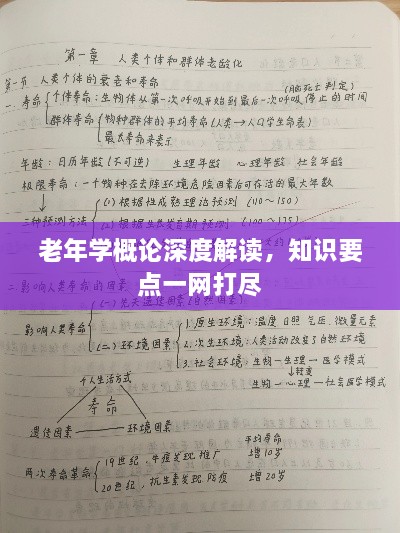 第一章 人类个体和群体老龄化
第一节 人类个体的衰老和寿命
(脑死亡判定)
一、寿命 个体寿命：生物体从第一次呼吸开始到最后一次呼吸停止的时间
群体寿命 物种群体的平均寿命(人类→人口学生命表)
最大寿命来表示
年龄：日历年龄(不可逆) 生理年龄 心理年龄 社会年龄
极限寿命：一个物种在去除环境危险因素后可存活的最大年数
三种预测方法 (1)根据性成熟理论预测 (110~150)
老年学概论深度解读，知识要点一网打尽
二、影响人类寿命的因素
影响人类寿命 (二)环境因素
1.原生环境：温度 日照 气压 微量元素
2.次生环境：人类活动改变了自然环境
3.社会环境：生物—生理—医学模式
↓转变
生物—心理—社会医学模式
个人生活方式
寿命
遗传因素 环境因素
平均寿命
两次寿命革命 19世纪，牛痘发现推广 增10岁
20世纪，抗生素发现 防疫 增20岁